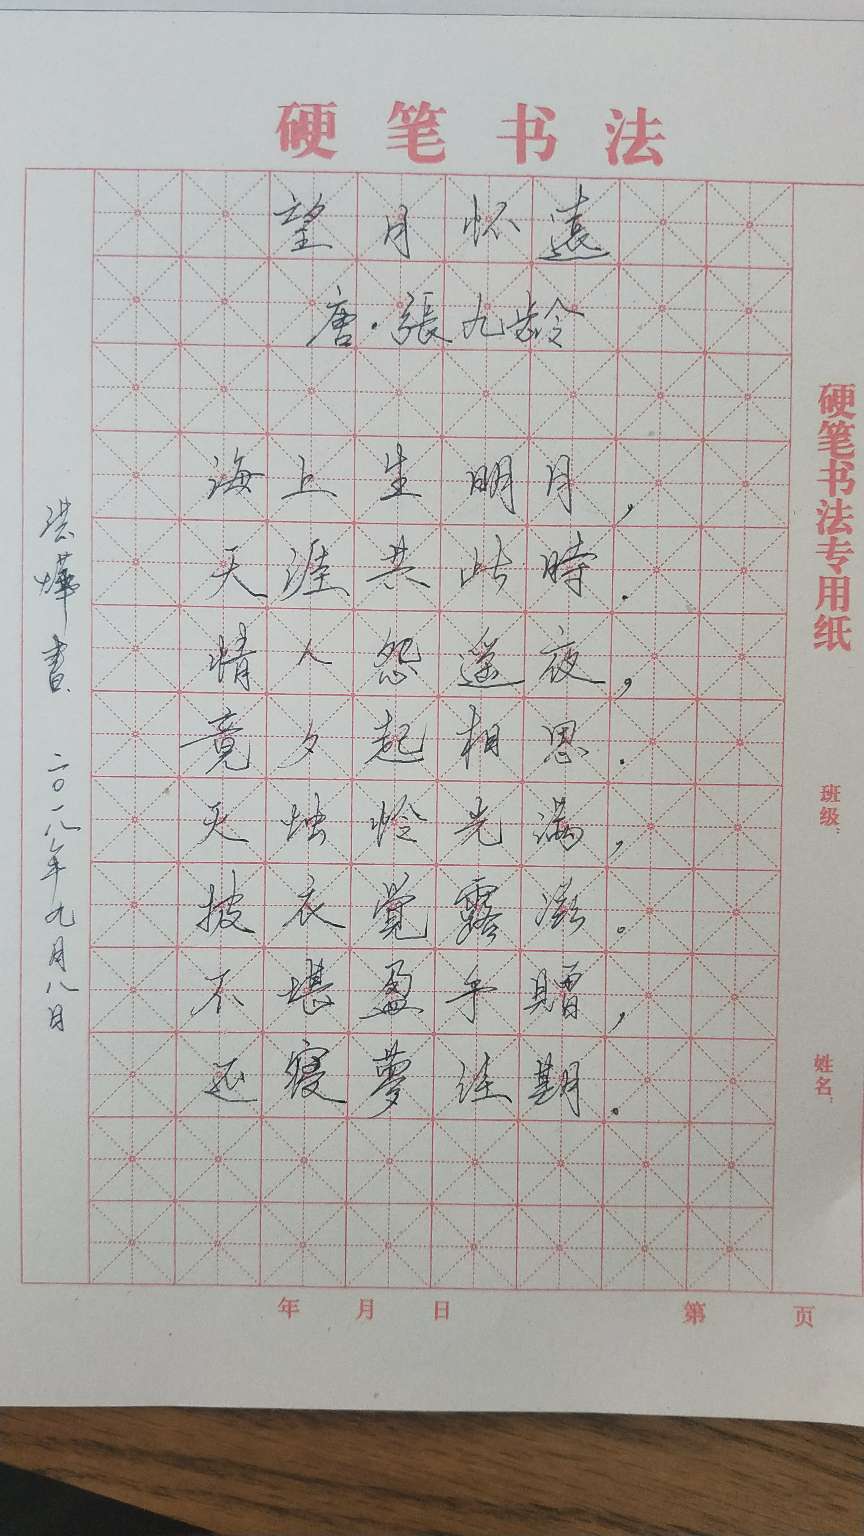 硬笔书法
望月怀遠
唐·張九齡
海上生明月，
天涯共此時.
情人怨遥夜，
竟夕起相思.
灭烛怜光满，
披衣覺露滋。
不堪盈手贈，
还寝夢佳期.
書
二〇一八年九月八日
硬笔书法专用纸
班级:
姓名:
年 月 日 第 页